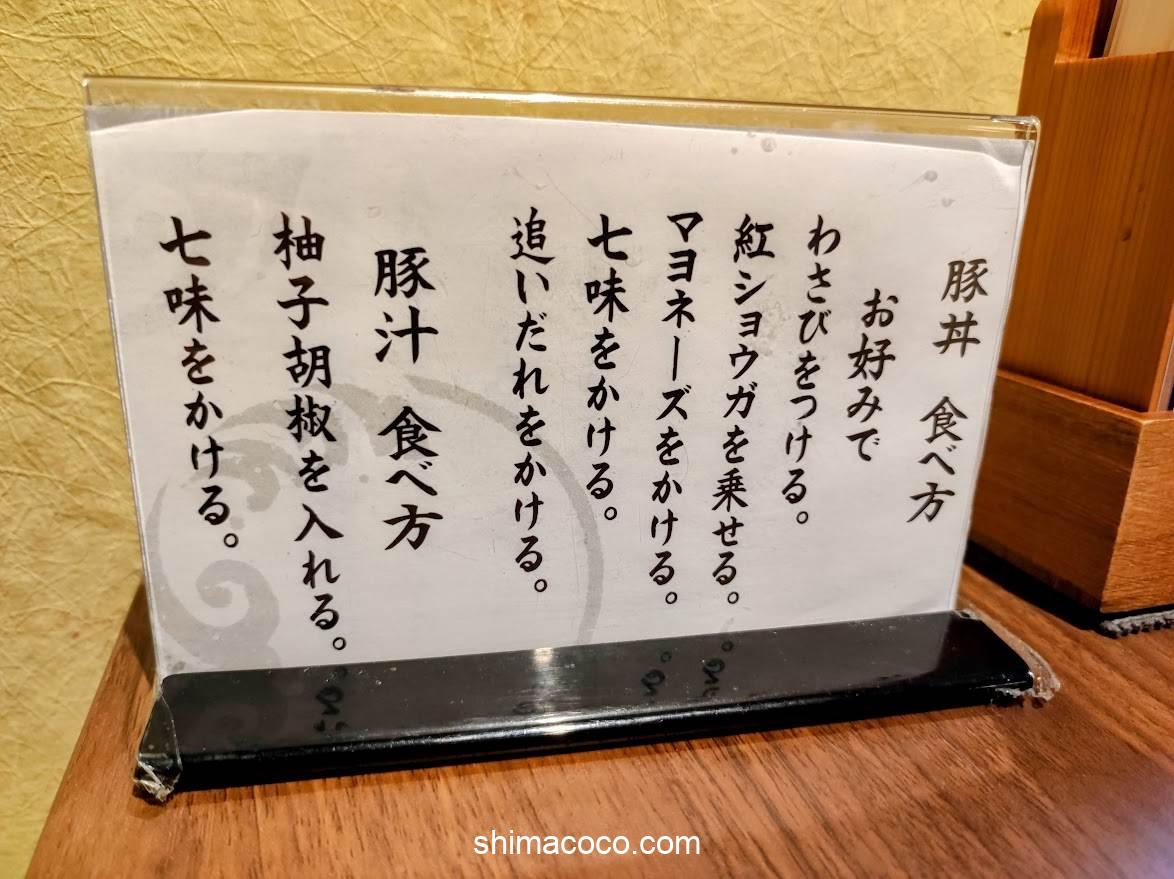 豚丼 食べ方
お好みで
わさびをつける。
紅ショウガを乗せる。
マヨネーズをかける。
七味をかける。
追いだれをかける。
豚汁 食べ方
柚子胡椒を入れる。
七味をかける。
shimacoco.com